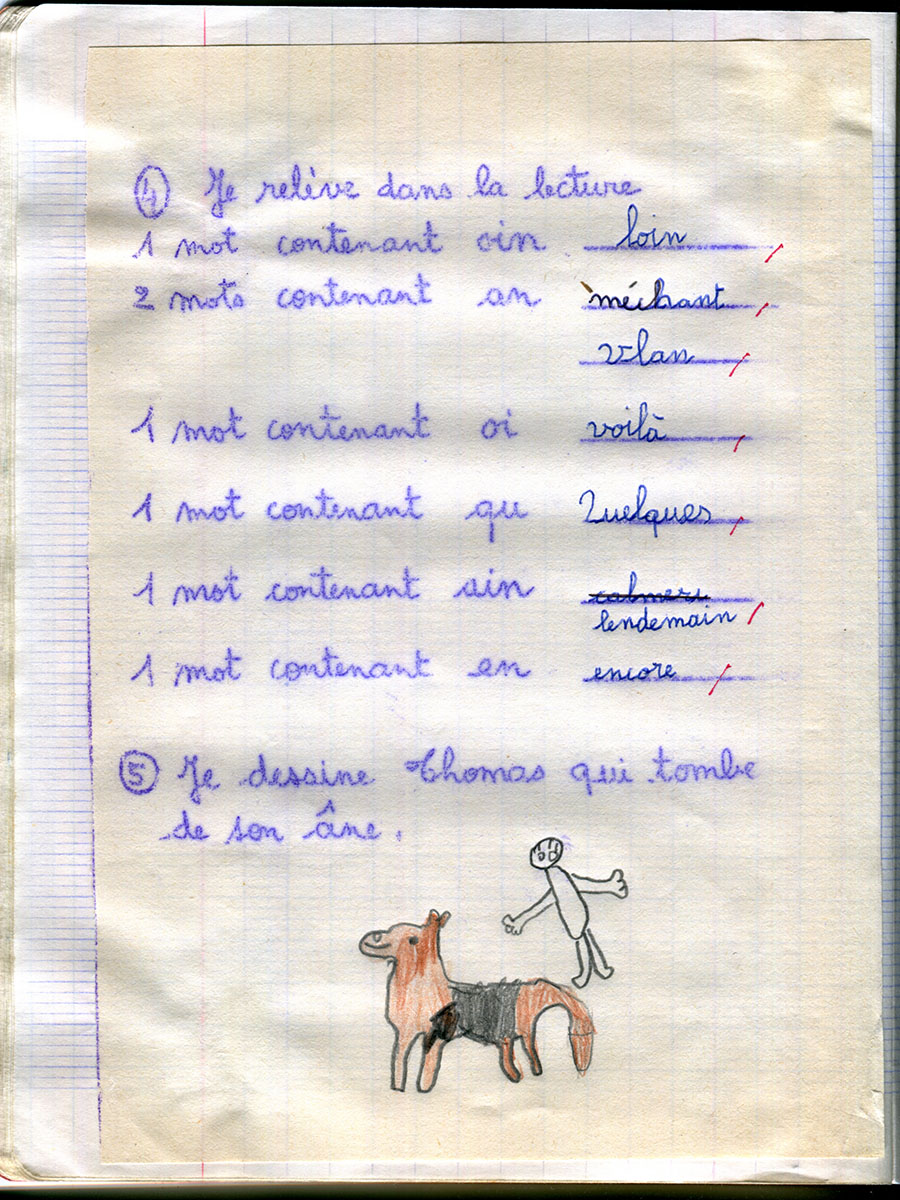 4 Je relève dans la lecture
1 mot contenant oin loin
2 mots contenant an méchant
vlan
1 mot contenant oi voilà
1 mot contenant qu Quelques
1 mot contenant ain
lendemain
1 mot contenant en encore
5 Je dessine Thomas qui tombe
de son âne.